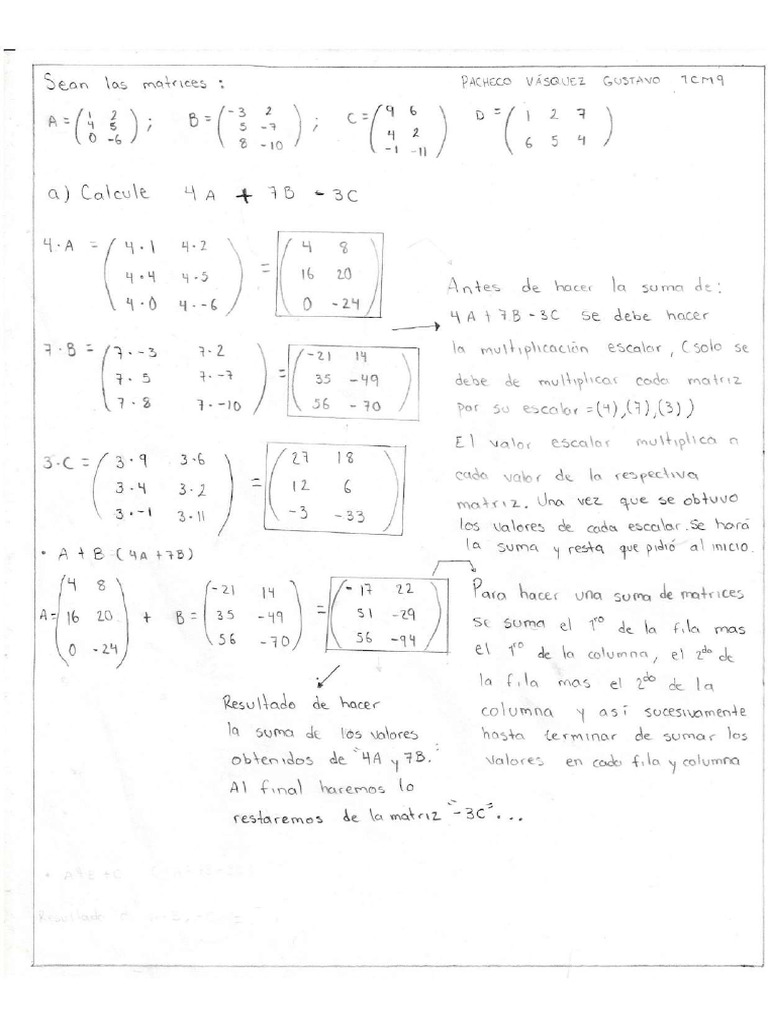 Sean las matrices :
PACHECO VÁSQUEZ GUSTAVO 1CM9
A = ( 1 2 ; B = ( -3 2 ; C = ( 9 6 D = ( 1 2 7
4 5 5 -7 4 2 6 5 4
0 -6 ) 8 -10 ) -1 -11 ) )
a) Calcule 4A + 7B - 3C
4·A = ( 4·1 4·2 = ( 4 8
4·4 4·5 16 20
4·0 4·-6 ) 0 -24 )
7·B = ( 7·-3 7·2 = ( -21 14
7·5 7·-7 35 -49
7·8 7·-10 ) 56 -70 )
3·C = ( 3·9 3·6 = ( 27 18
3·4 3·2 12 6
3·-1 3·11 ) -3 -33 )
Antes de hacer la suma de:
4A + 7B - 3C se debe hacer
la multiplicación escalar, (solo se
debe de multiplicar cada matriz
por su escalar = (4), (7), (3) )
El valor escalar multiplica a
cada valor de la respectiva
matriz. Una vez que se obtuvo
los valores de cada escalar. Se hará
la suma y resta que pidió al inicio.
• A + B = (4A + 7B)
A = ( 4 8 + B = ( -21 14 = ( -17 22
16 20 35 -49 51 -29
0 -24 ) 56 -70 ) 56 -94 )
Para hacer una suma de matrices
se suma el 1ro de la fila mas
el 1ro de la columna, el 2do de
la fila mas el 2do de la
columna y así sucesivamente
hasta terminar de sumar los
valores en cada fila y columna
Resultado de hacer
la suma de los valores
obtenidos de "4A y 7B."
Al final haremos lo
restaremos de la matriz "-3C"...